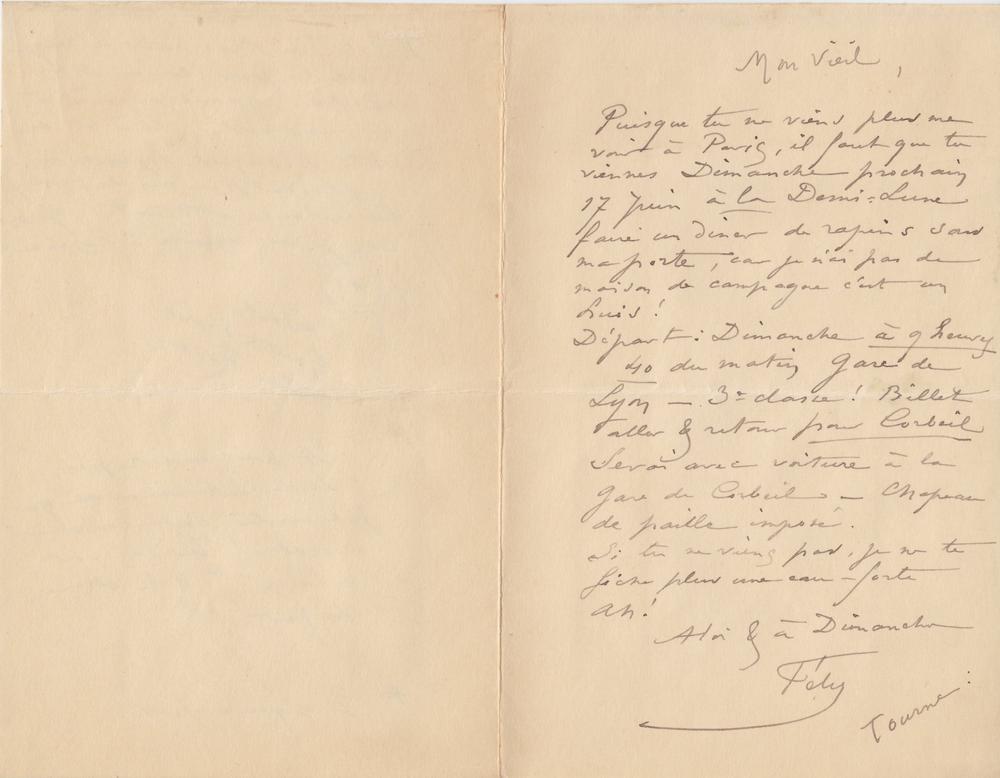 Mon Vieil,
Puisque tu ne viens plus me
voir à Paris, il faut que tu
viennes Dimanche prochain
17 Juin à la Demi-Lune
faire un diner de rapins sous
ma porte, car je n'ai pas de
maison de campagne c'est un
huis!
Départ : Dimanche à 9 heures
40 du matin Gare de
Lyon — 3e classe! Billet
aller & retour pour Corbeil
Serai avec voiture à la
gare de Corbeil — Chapeau
de paille imposé.
Si tu ne viens pas, je ne te
fiche plus une eau-forte
Ah!
A toi & à Dimanche
Fély
Tourne :